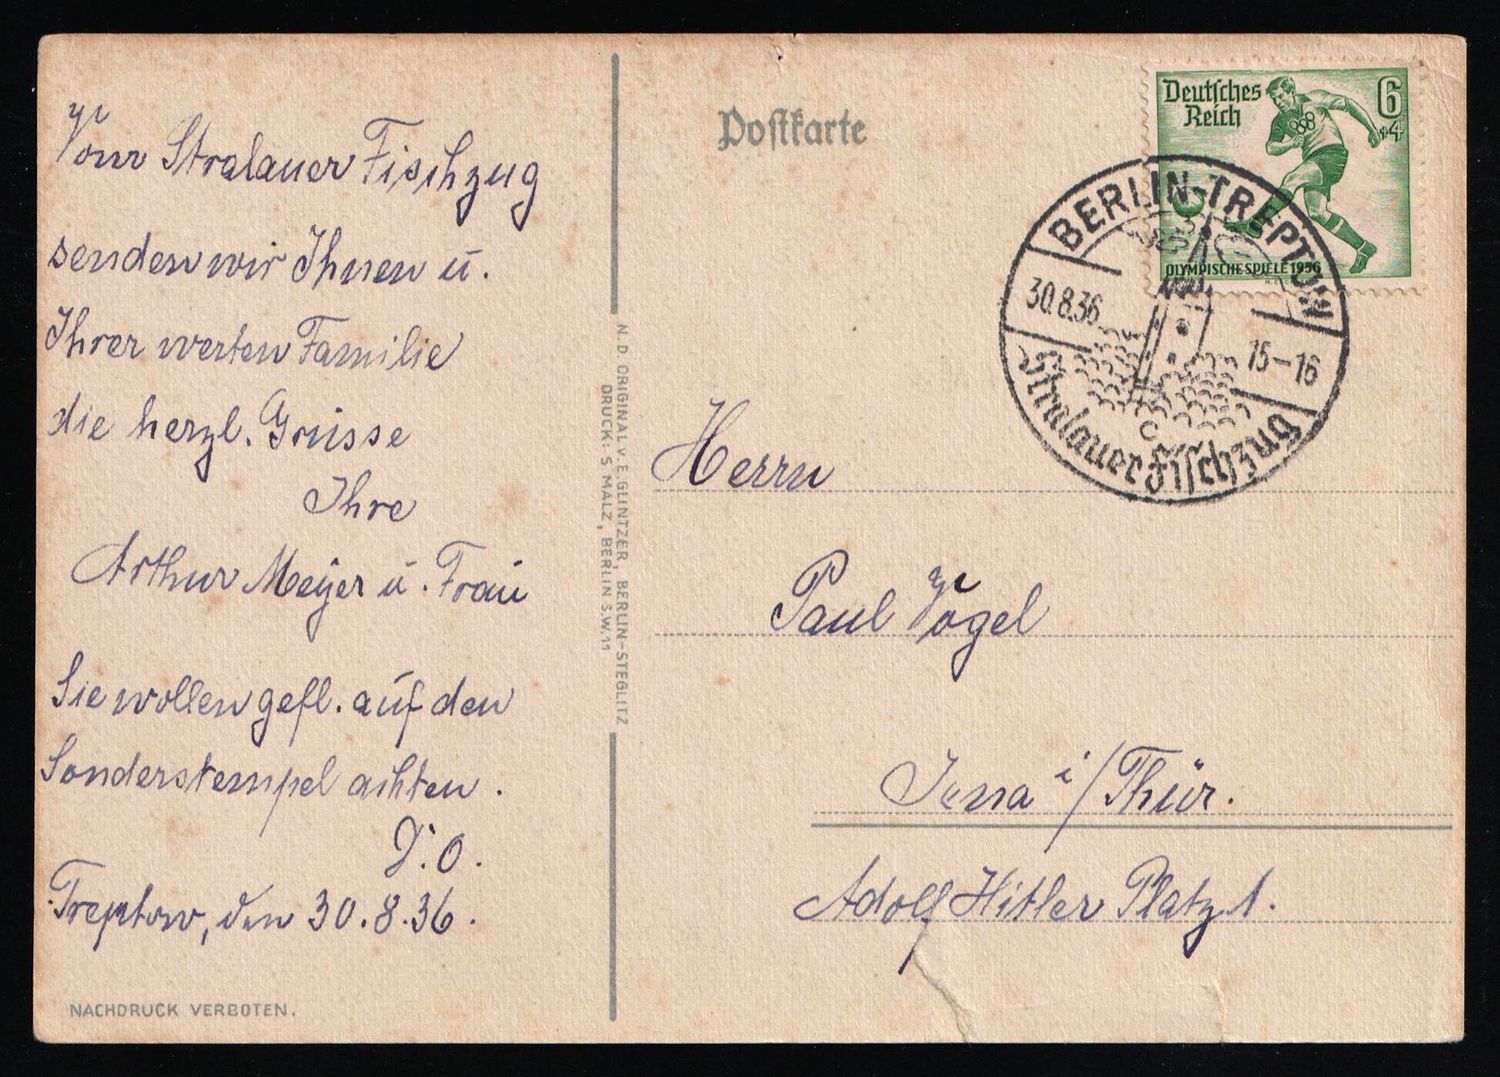 Vom Stralauer Fischzug
senden wir Ihnen u.
Ihrer werten Familie
die herzl. Grüsse
Ihre
Arthur Meyer u. Frau
Sie wollen gefl. auf den
Sonderstempel achten.
D.O.
Treptow, den 30.8.36.
NACHDRUCK VERBOTEN.
N. D. ORIGINAL V. E. GLINTZER, BERLIN-STEGLITZ
DRUCK: S. MALZ, BERLIN S.W.11
Postkarte
Deutsches
Reich
6
+4
OLYMPISCHE SPIELE 1936
BERLIN-TREPTOW
30.8.36
15-16
c
Stralauer Fischzug
Herrn
Paul Vogel
Jena i/Thür.
Adolf Hitler Platz 1.